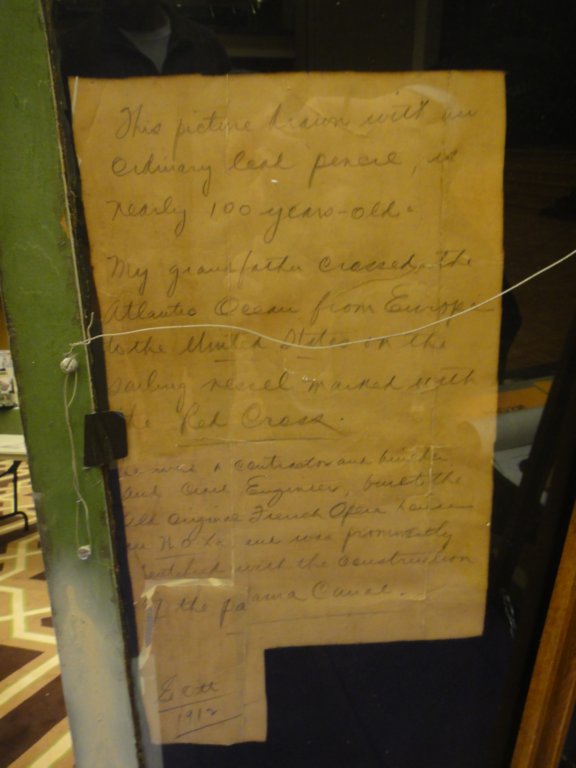 This picture drawn with an
ordinary lead pencil, is
nearly 100 years-old.
My grandfather crossed the
Atlantic Ocean from Europe
to the United States on the
sailing vessel marked with
the Red Cross.
He was a contractor and builder
and Civil Engineer, built the
old original French Opera House
in N.O. La and was prominently
with the construction
of the Pa ama Canal.
1912